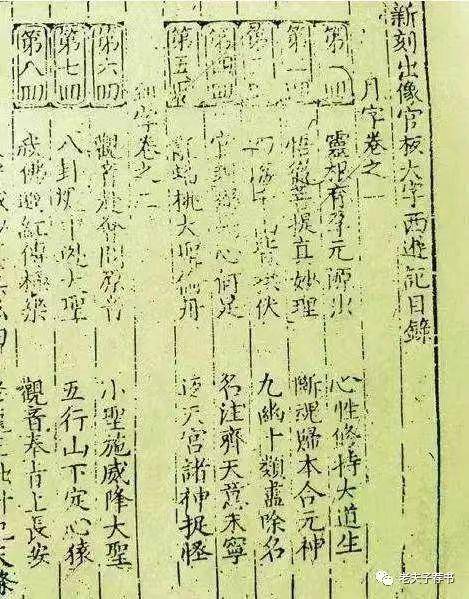 新刻出像官板大字西遊記目錄
月字卷之一
第一回 靈根育孕元源出 心性修持大道生
第二回 悟徹菩提真妙理 斷魂歸本合元神
第三回 四海千山皆拱伏 九幽十類盡除名
第四回 官封弼馬心何足 名注齊天意未寧
第五回 蟠桃大聖偷丹 天宮諸神捉怪
字卷之二
第六回 觀音赴會問原因 小聖施威降大聖
第七回 八卦爐中逃大聖 五行山下定心猿
第八回 我佛造經傳極樂 觀音奉旨上長安
老龍王拙計犯天條
老夫子荐书